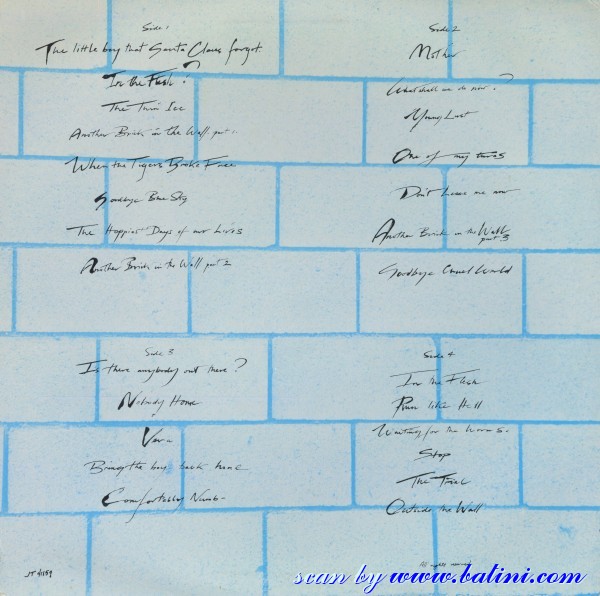 Side 1
The little boy that Santa Claus forgot.
In the Flesh ?
The Thin Ice
Another Brick in the Wall part 1.
When the Tigers Broke Free
Goodbye Blue Sky
The Happiest Days of our Lives
Another Brick in the Wall part 2
Side 2
Mother
What shall we do now ?
Young Lust
One of my turns
Don't Leave me now
Another Brick in the Wall
part 3
Goodbye Cruel World
Side 3
Is there anybody out there ?
Nobody Home
Vera
Bring the boys back home
Comfortably Numb-
Side 4
In the Flesh
Run like Hell
Waiting for the Worms.
Stop
The Trial
Outside the Wall
All rights reserved
JT 41159
scan by www.batini.com